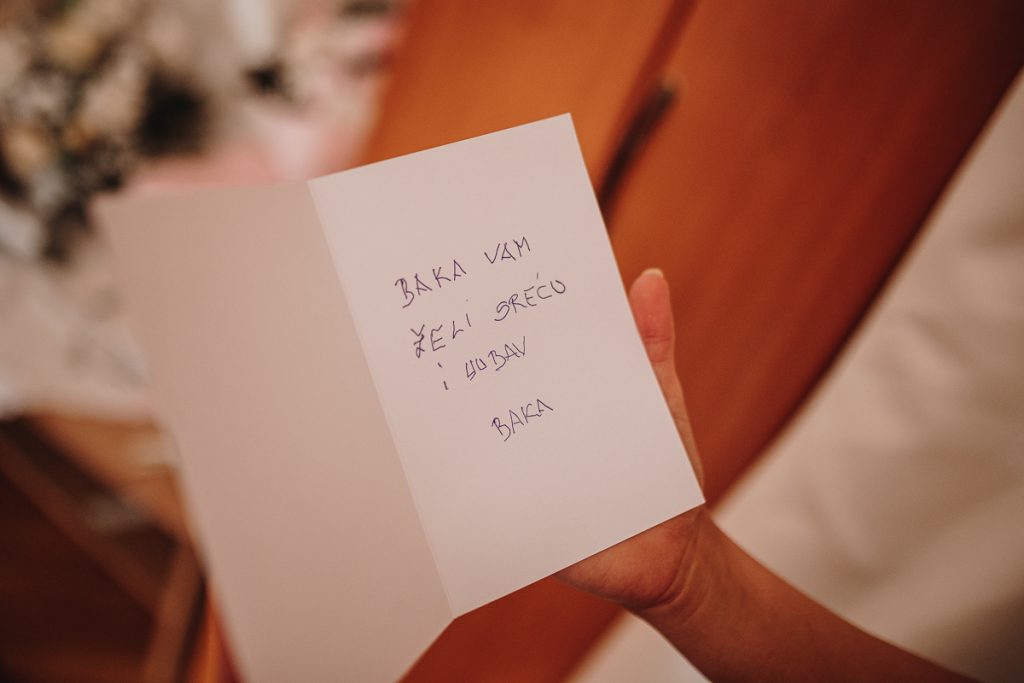 BAKA VAM
ŽELI SREĆU
i LJUBAV
BAKA